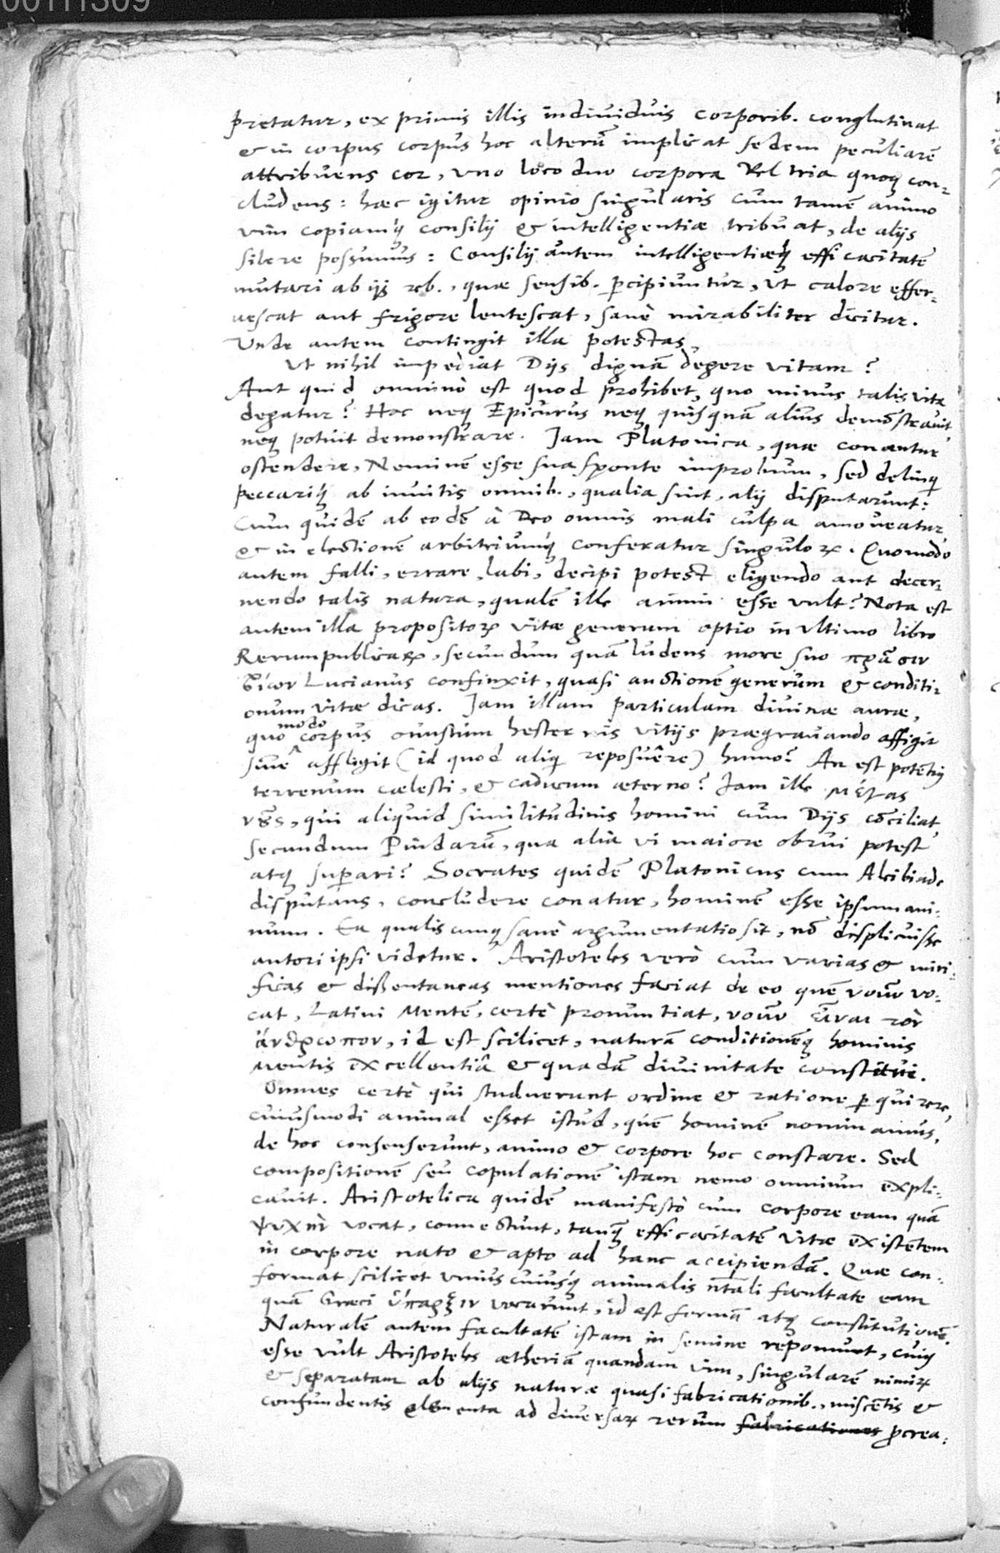 00111309
pretatur, ex primis illis indiuiduis corporib. conglutinat
& in corpus corpus hoc alterũ implicat sedem peculiarẽ
attribuens cor, uno loco duo corpora Vel tria quoq con-
cludens: hæc igitur opinio singularis cum tamẽ animo
uim copiamq́ consilij & intelligentiæ tribuat, de alijs
silere possumus: Consilij autem intelligentiæq́ efficacitatẽ
mutari ab ijs reb., quæ sensib. percipiuntur, ut calore effer-
uescat aut frigore lentescat, sanè mirabiliter dicitur.
Unde autem contingit illa potestas,
Ut nihil impediat Dijs dignã degere vitam?
Aut quid omninò est quod prohibet, quo minus talis vita
degatur? Hoc neq Epicurus neq quisquã alius demõstrauit
neq potuit demonstrare. Jam Platonica, quæ conantur
ostendere, Neminẽ esse sua sponte improbum, sed delinq
peccariq́ ab inuitis omnib., qualia sint, alij disputarunt:
Cum quidẽ ab eodẽ à Deo omnis mali culpa amoueatur,
& in electionẽ arbitriumq́ conferatur singuloꝝ. Quomodo
autem falli, errare, labi, decipi potest eligendo aut decer-
nendo talis natura, qualẽ ille animi esse vult? Nota est
autem illa propositoꝝ vitæ generum optio in ultimo libro
Rerumpublicaꝝ, secundum quã ludens more suo πρᾶσιν
βίων Lucianus confinxit, quasi auctionẽ generum & conditi-
onum vitæ dicas. Jam illam particulam diuinæ auræ,
quo modo corpus onustum hesternis vitijs prægrauando affigit
siue affligit (id quod aliq reposuêre) humo? An est potẽtiꝰ
terrenum cælesti, & caducum æterno? Jam ille μέγας
νȣ̃ς, qui aliquid similitudinis homini cum Dijs cõciliat,
secundum Pindarũ, qua alia vi maiore obrui potest
atq superari? Socrates quidẽ Platonicus cum Alcibiade
disputans, concludere conatur, hominẽ esse ipsum ani-
mum. Ea qualiscumq sanè argumentatio sit, nõ displicuisse
autori ipsi videtur. Aristoteles verò cum varias & miri-
ficas & dissentaneas mentiones faciat de eo quẽ νοῦν vo-
cat, Latini Mentẽ, certè pronuntiat, νοῦν εἶναι τὸν
ἄνθρωπον, id est scilicet, naturã conditionẽq hominis
mentis excellentiâ & quadã diuinitate constitui.
Omnes certè qui studuerunt ordine & ratione perquirere,
cuiusmodi animal esset istud, quẽ hominẽ nominamus,
de hoc consenserunt, animo & corpore hoc constare. Sed
compositionẽ seu copulationẽ istam nemo omnium expli-
cauit. Aristotelica quidẽ manifestò cum corpore eam quã
ψυχὴν vocat, connectunt, tanq̃ efficacitatẽ vitæ existẽtem
in corpore nato & apto ad hanc accipiendã. Quæ con-
format scilicet uniuscuiusq́ animalis nãtali facultate eam
quã Græci ὕπαρξιν vocarunt, id est formã atq constitutionẽ.
Naturalẽ autem facultatẽ istam in semine reponunt, cuiꝰ
esse vult Aristoteles ætheriã quandam vim, singularẽ nimiꝝ
& separatam ab alijs naturæ quasi fabricationib., miscẽtis &
confundentis elementa ad diuersaꝝ rerum fabricationes procrea-